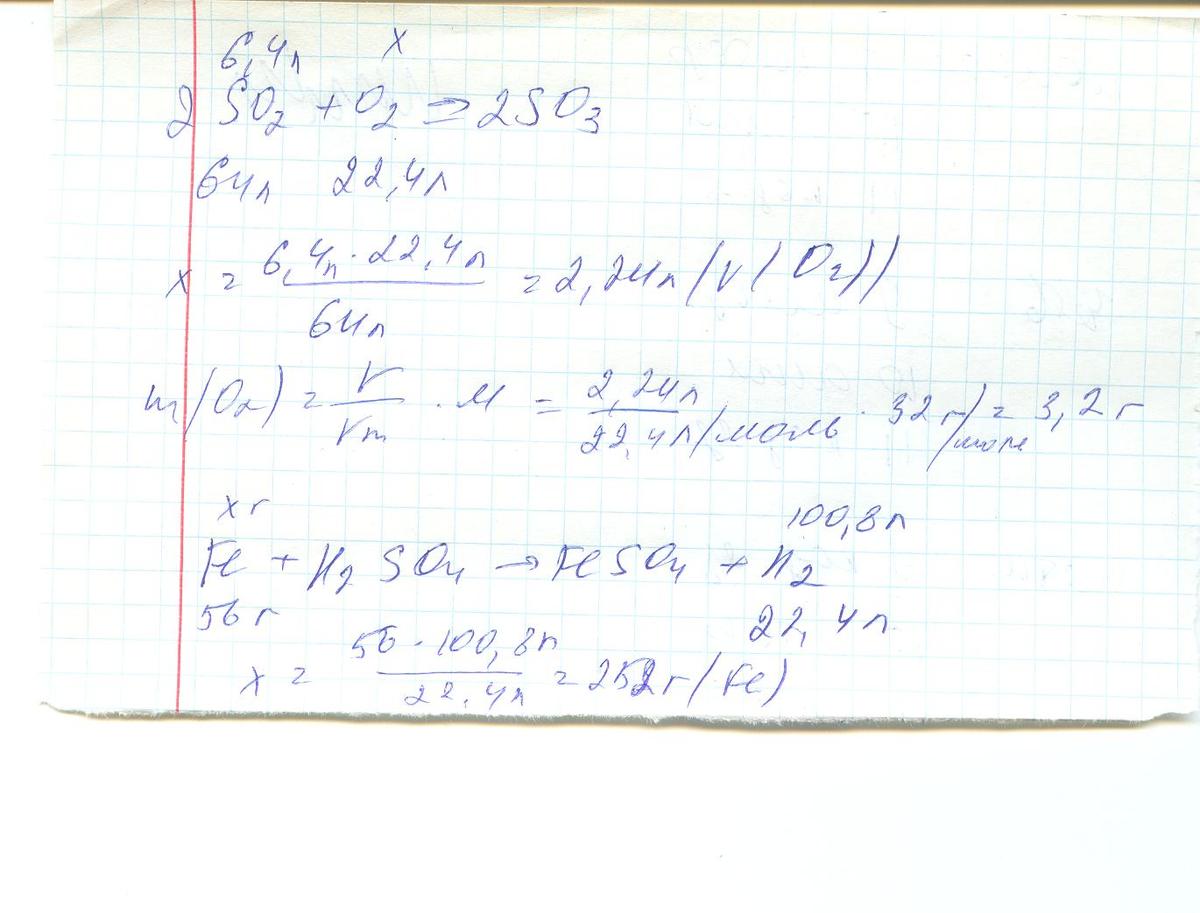 6,4л x
2 SO₂ + O₂ = 2SO₃
64л 22,4л
x = 6,4л · 22,4л / 64л = 2,24л (V(O₂))
m(O₂) = V / Vm · M = 2,24л / 22,4л/моль · 32 г/моль = 3,2 г
x г 100,8л
Fe + H₂SO₄ → FeSO₄ + H₂
56 г 22,4л
x = 56 · 100,8л / 22,4л = 252г (Fe)